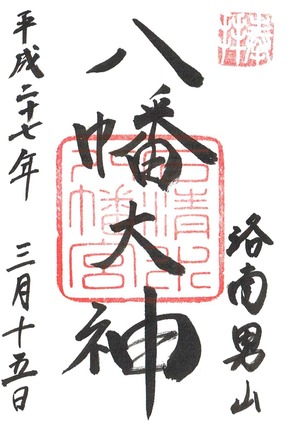 奉拝
洛南男山
八幡大神
石清水
八幡宮
平成二十七年
三月十五日